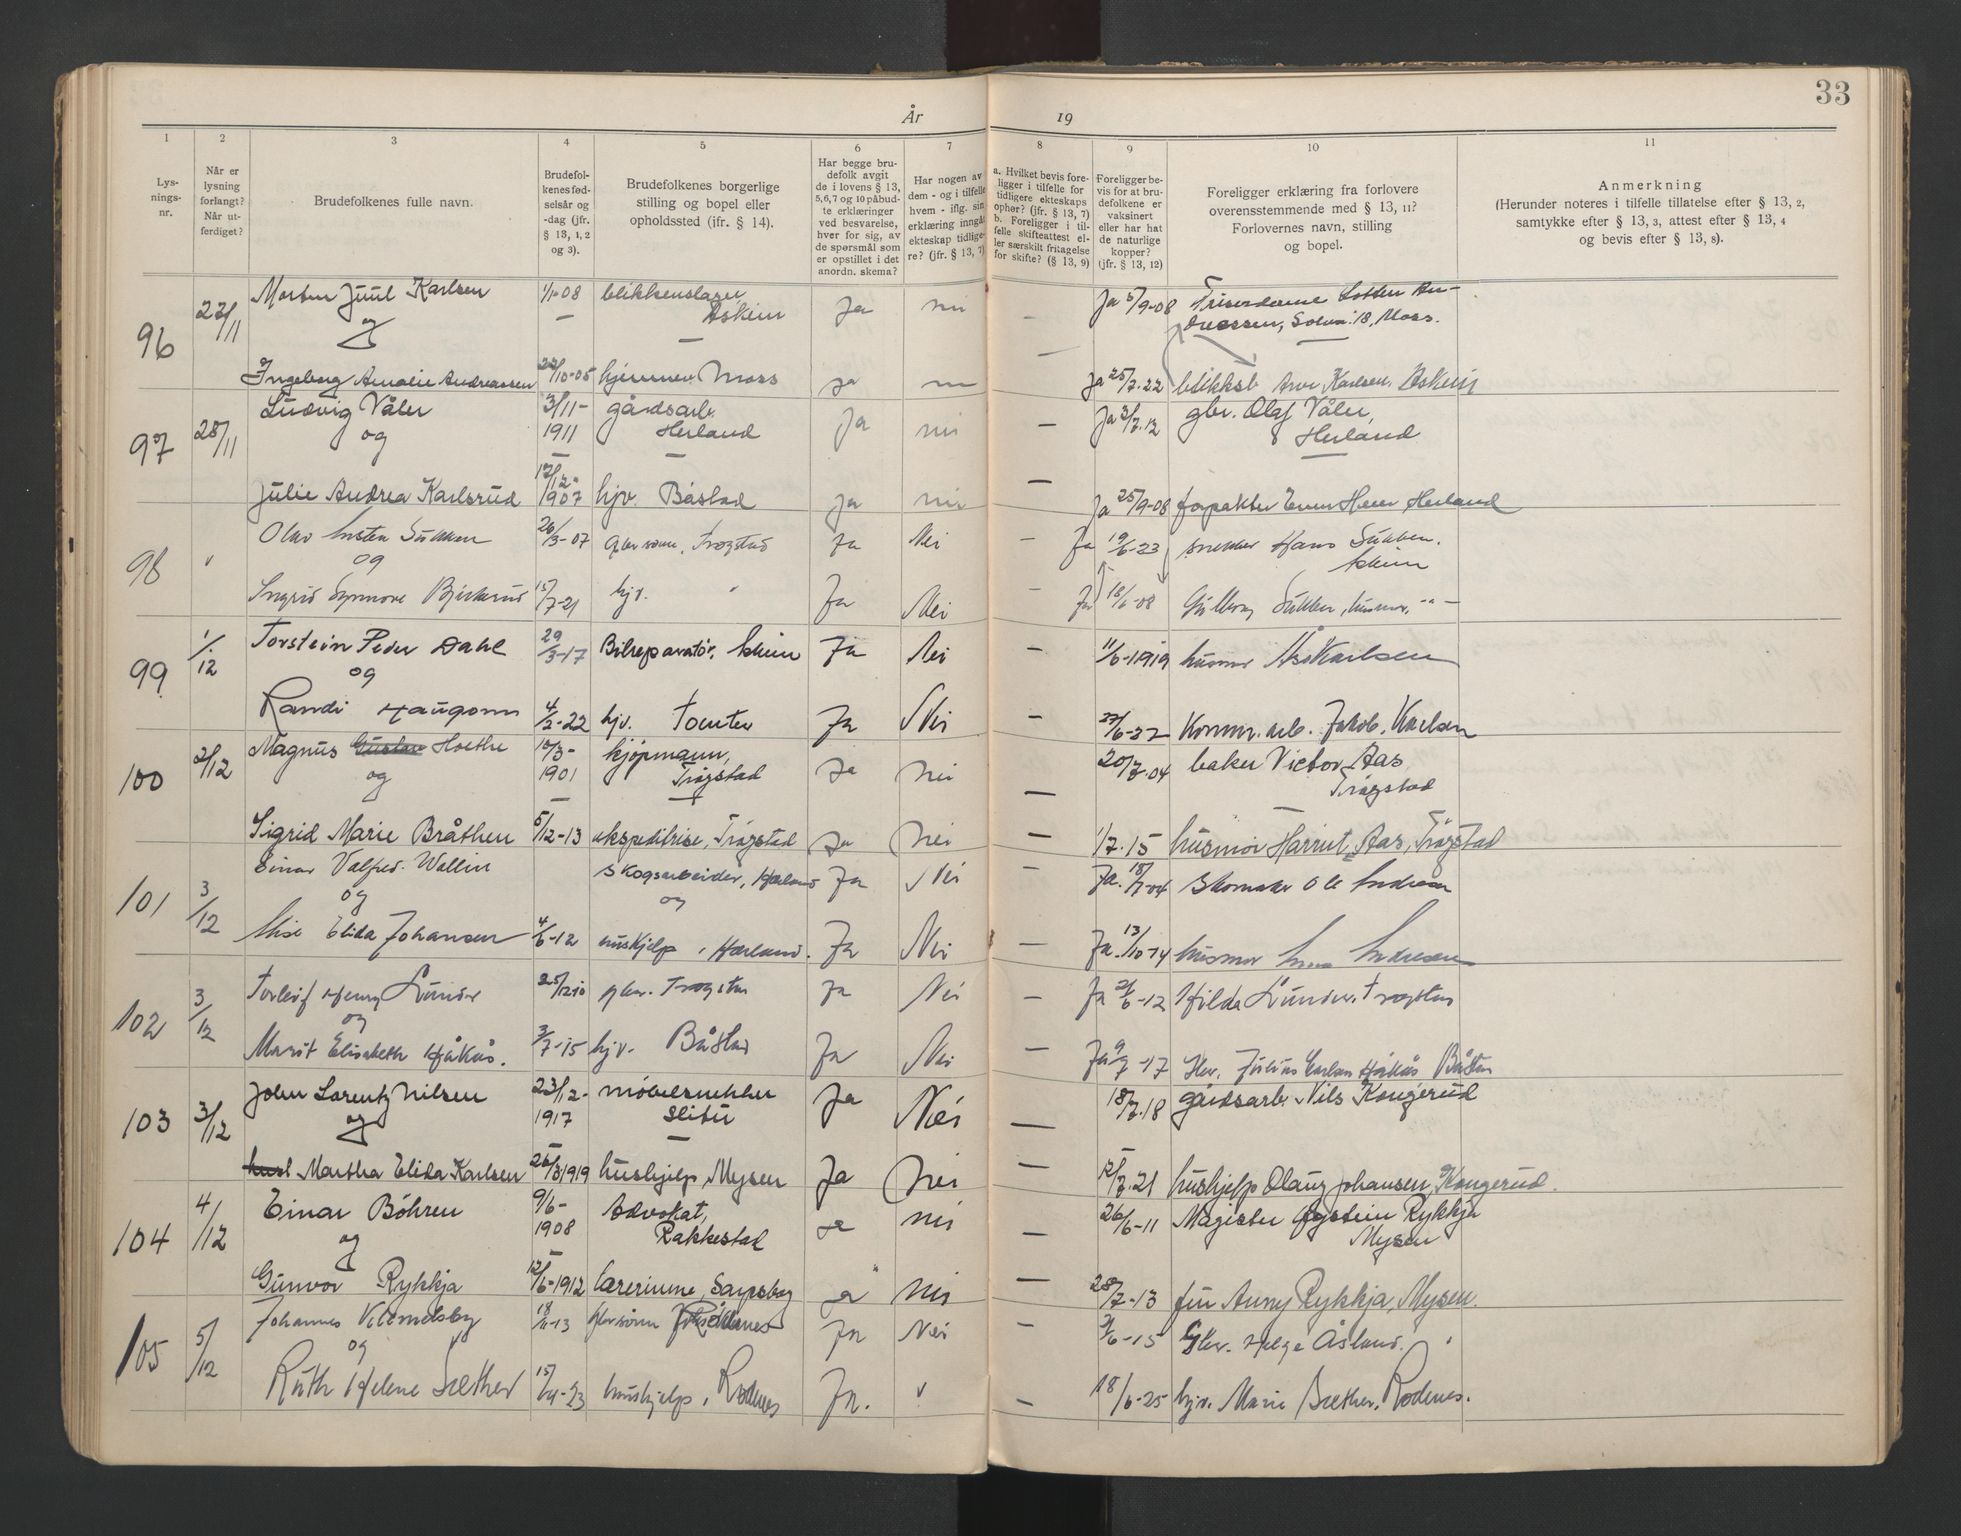 33
År 19
1 2 3 4 5 6 7 8 9 10 11
Lys-
nings-
nr.
Når er
lysning
forlangt?
Når ut-
ferdiget?
Brudefolkenes fulle navn.
Brudefol-
kenes fød-
selsår og
-dag (jfr.
§ 13, 1, 2
og 3).
Brudefolkenes borgerlige
stilling og bopel eller
opholdssted (jfr. § 14).
Har begge bru-
defolk avgit
de i lovens § 13,
5, 6, 7 og 10 påbud-
te erklæringer
ved besvarelse,
hver for sig, av
de spørsmål som
er opstillet i det
anordn. skema?
Har nogen av
dem - og i tilfelle
hvem - iflg. sin
erklæring inngått
ekteskap tidlige-
re? (jfr. § 13, 7)
a. Hvilket bevis fore-
ligger i tilfelle for
tidligere ekteskaps
ophør? (jfr. § 13, 7)
b. Foreligger i til-
felle skifteattest el-
ler særskilt fritagelse
for skifte? (§ 13, 9)
Foreligger be-
vis for at bru-
defolkene er
vaksinert
eller har hat
de naturlige
kopper?
(jfr. § 13, 12)
Foreligger erklæring fra forlovere
overensstemmende med § 13, 11?
Forlovernes navn, stilling
og bopel.
Anmerkning
(Herunder noteres i tilfelle tillatelse efter § 13, 2,
samtykke efter § 13, 3, attest efter § 13, 4
og bevis efter § 13, 8).
96 22/11 Morten Juul Karlsen 1/1-08 blikkenslager Ja nei — Ja 5/9-08
Askim
og — Solvn. 18, Moss.
Ingeborg Amalie Andreassen 22/10-05 hjemmev. Moss Ja nei — Ja 25/7.22 blikksl. Arve Karlsen, Askim
97 28/11 Ludvig Våler 3/11- gårdsarb. Ja nei — Ja 3/7.12 gbr. Olaf Våler,
og 1911 Herland Herland
Julie Andrea Karlsrud 12/12- 1907 hjv. Båstad Ja nei — Ja 25/9-08 forpakter Herland
98 " Olav 26/3-07 gbrsønn, Trøgstad Ja Nei — Ja 19/6-23 snekker Hans Sukken,
og Askim
Ingrid Synnøve Bjerkerud 15/7-21 hjv. " Ja Nei — Ja 18/6-08 Sukken, husmor, -"-
99 1/12 Torstein Peder Dahl 29/3-17 Bilreparatør, Askim Ja Nei — 11/6-1919 husmor Karlsen
og
Randi Haugom 4/2-22 hjv. Tomter Ja Nei — 27/6-22 Komm. arb. Jakob Karlsen
100 2/12 Magnus Gustav Hoethe 10/3- kjøpmann, Ja Nei — 20/7-04 baker Victor Aas
og 1901 Trøgstad Trøgstad
Sigrid Marie Bråthen 5/12-13 ekspeditrise, Trøgstad Ja Nei — 1/7.15 husmor Harriet Aas, Trøgstad
101 3/12 Einar Valfred Wallin skogsarbeider, Hærland Ja Nei Ja. 18/7-04 Skomaker Ole Andresen
og og
Elida Johansen 4/6-12 hushjelp, Hærland. Ja Nei Ja. 13/10-14 husmor Andresen
102 3/12 Torleif Henry Lunder 25/12 10 gbr. Trøgstad Ja Nei — Ja 21/6-12 Hilda Lunder, Trøgstad
og
Marit Elisabeth Håkås. 3/7-15 hjv. Båstad Ja Nei — Ja 9/7-17 Gbr. Julius Carlsen Håkås Båstad
103 3/12 John Lorentz Nilsen 23/12- møbelsnekker Ja Nei — 18/7.18 gårdsarb. Nils Kongerud
og 1917 Slitu
Martha Elida Karlsen 26/3 1919 hushjelp, Mysen Ja Nei — 12/7.21 hushjelp Olaug Johansen, Kongerud.
104 4/12 Einar Böhren 9/6- Advokat, Ja nei — 26/6-11 Magister Øystein Rykkja
og 1908 Rakkestad Mysen
Gunvor Rykkja 12/6-1912 lærerinne, Sarpsborg Ja " nei — 28/7-13 frk Anny Rykkja, Mysen.
105 5/12 Johannes 18/11-13 gbrsønn Rødenes Ja Nei — 3/6-15 Gbr. Helge Åsland. "
og
Ruth Helene Sæther 15/4-23 hushjelp, Rødenes Ja. " — 18/6-25 hjv. Marie Sæther, Rødenes.